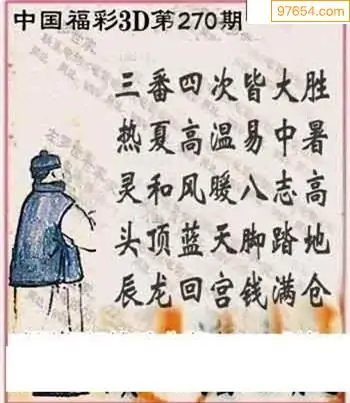 97654.com
中国福彩3D第270期
三番四次皆大胜
热夏高温易中暑
灵和风暖八志高
头顶蓝天脚踏地
辰龙回宫钱满仓